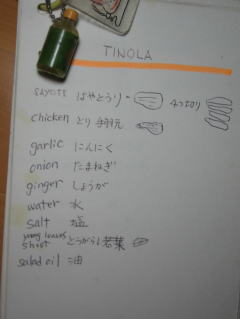 TINOLA
SAYOTE はやとうり 4つ切り
chicken とり 手羽元
garlic にんにく
onion たまねぎ
ginger しょうが
water 水
salt 塩
young leaves shoot とうがらし若葉
salad oil 油